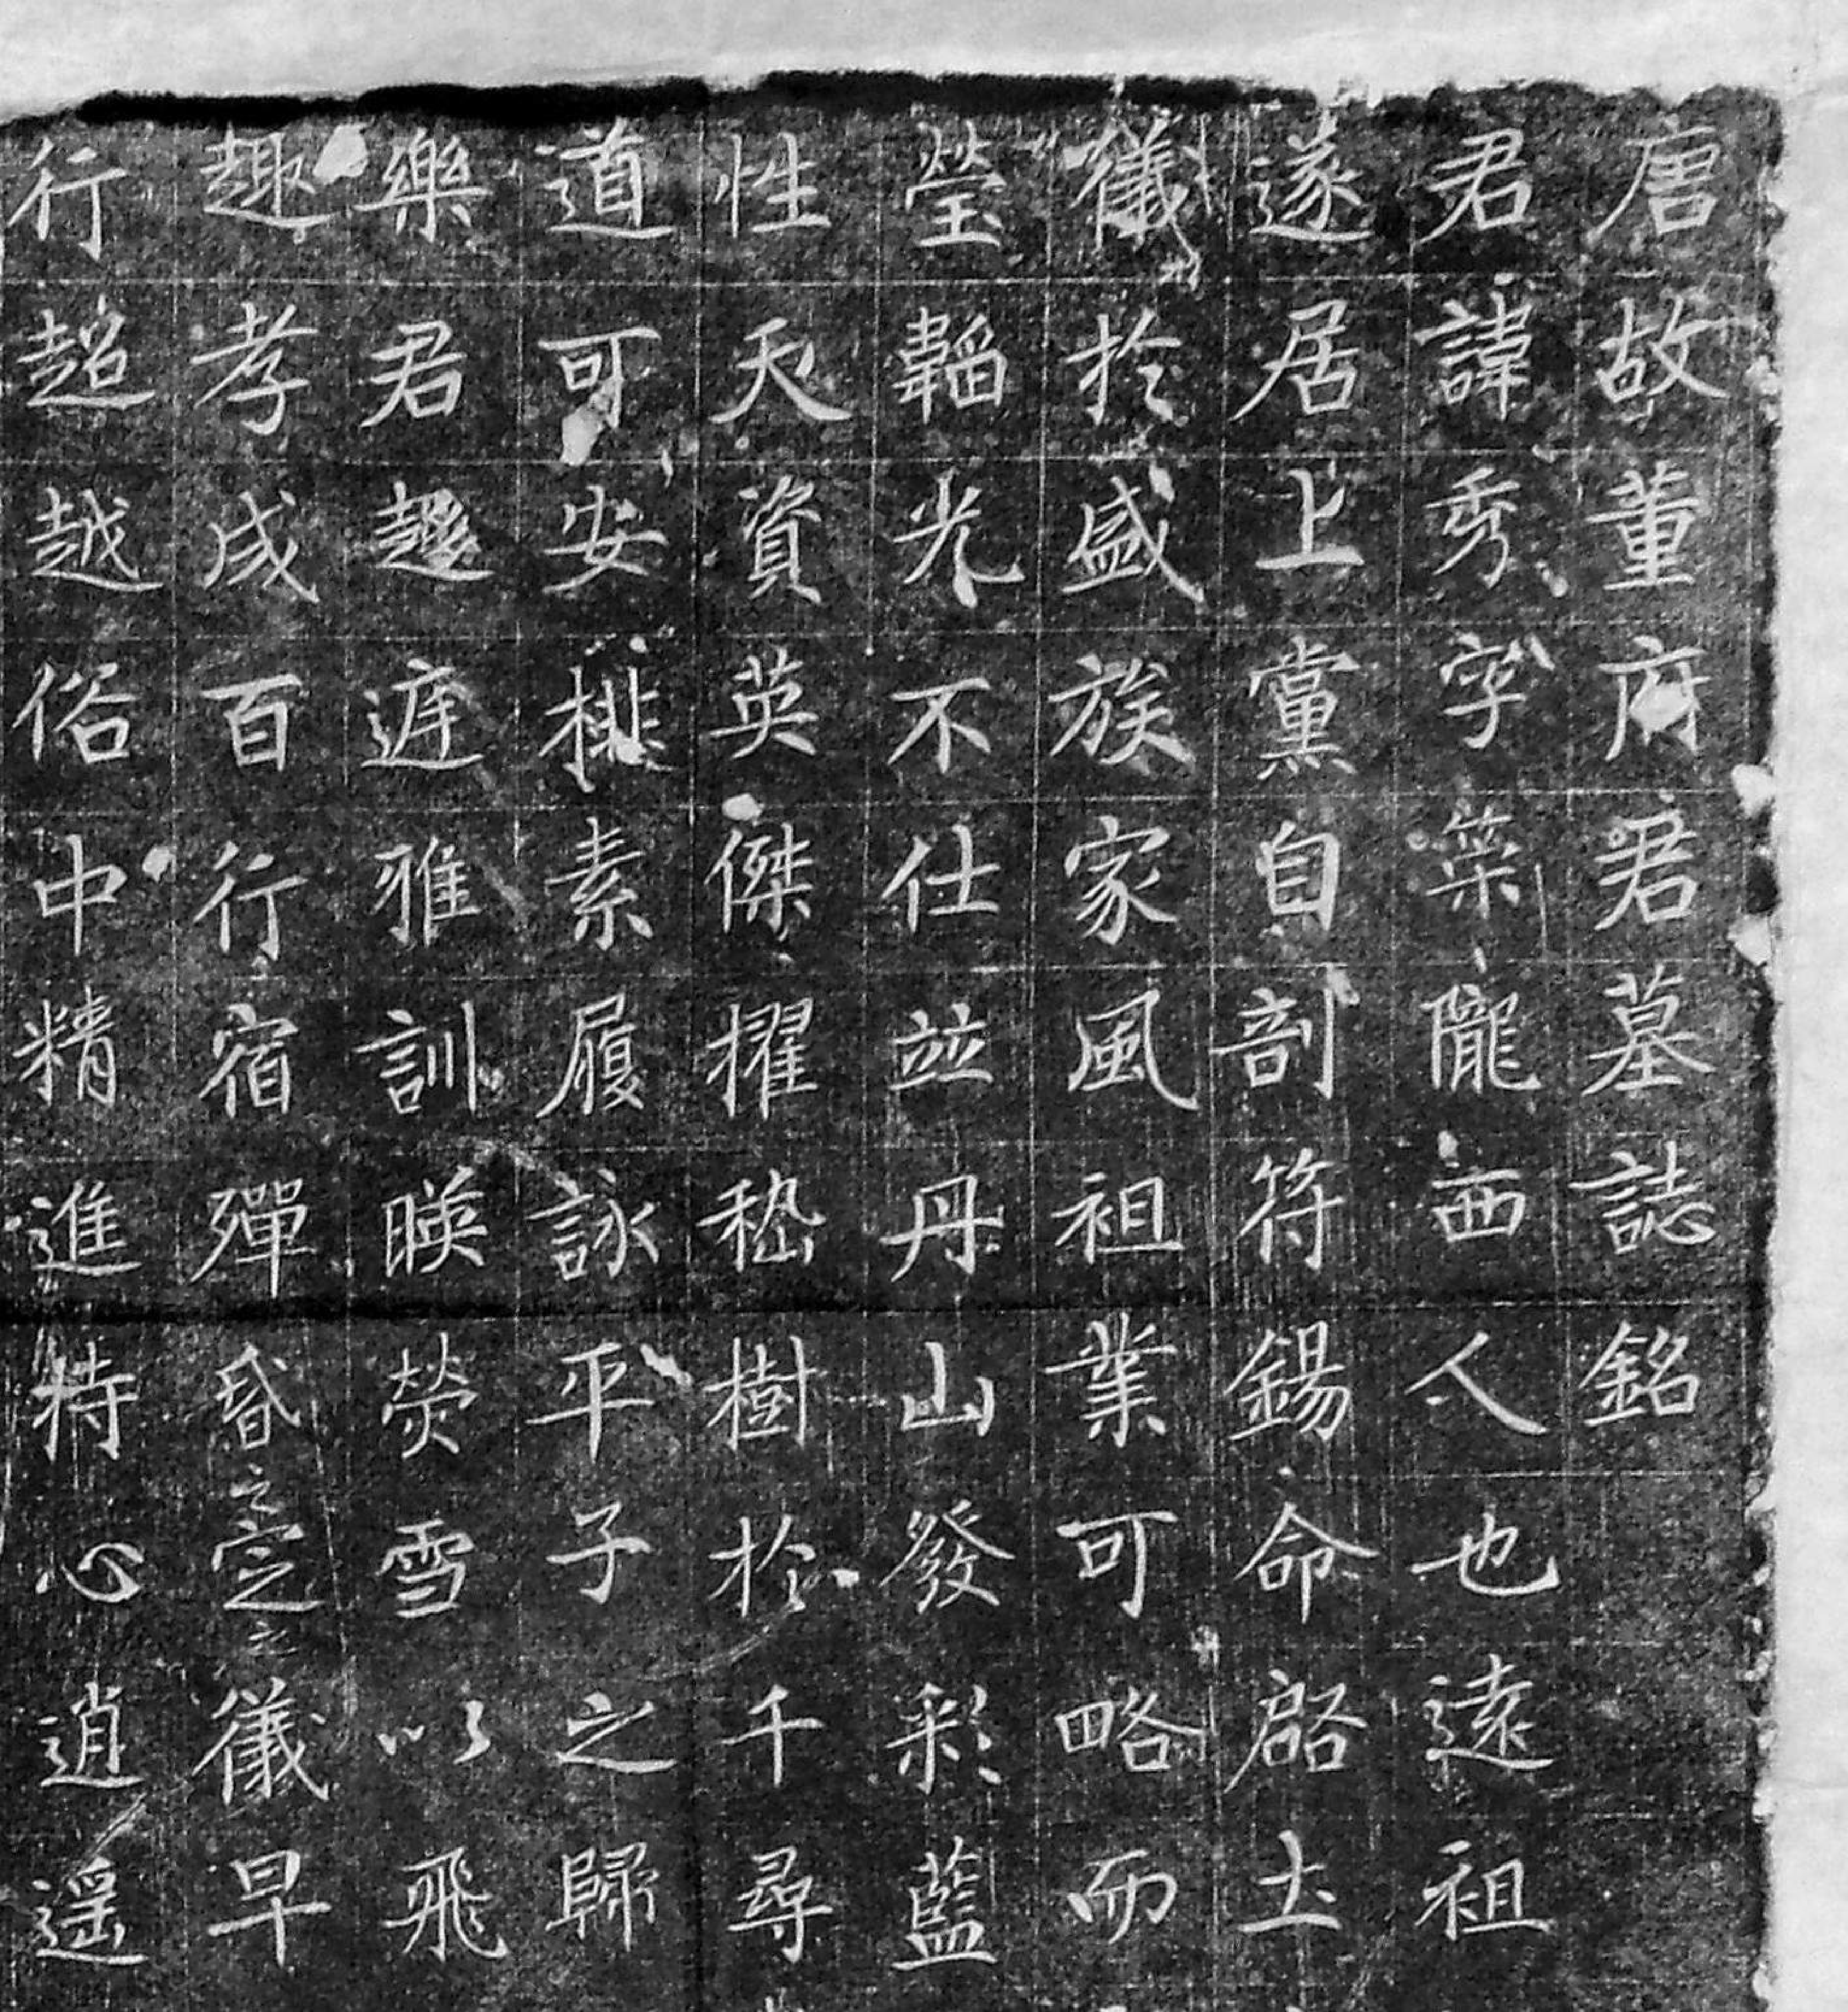 唐故董府君墓誌銘
君諱秀字榮隴西人也遠祖
遂居上黨自剖符錫命啓土
儀於盛族家風祖業可略而
瑩韜光不仕並丹山發彩藍
性天資英傑擢嵇樹於千尋
道可安棑素履詠平子之歸
樂君趍遊雅訓暎熒雪以飛
趣孝成百行宿殫昏定儀早
行超越俗中精進持心逍遥